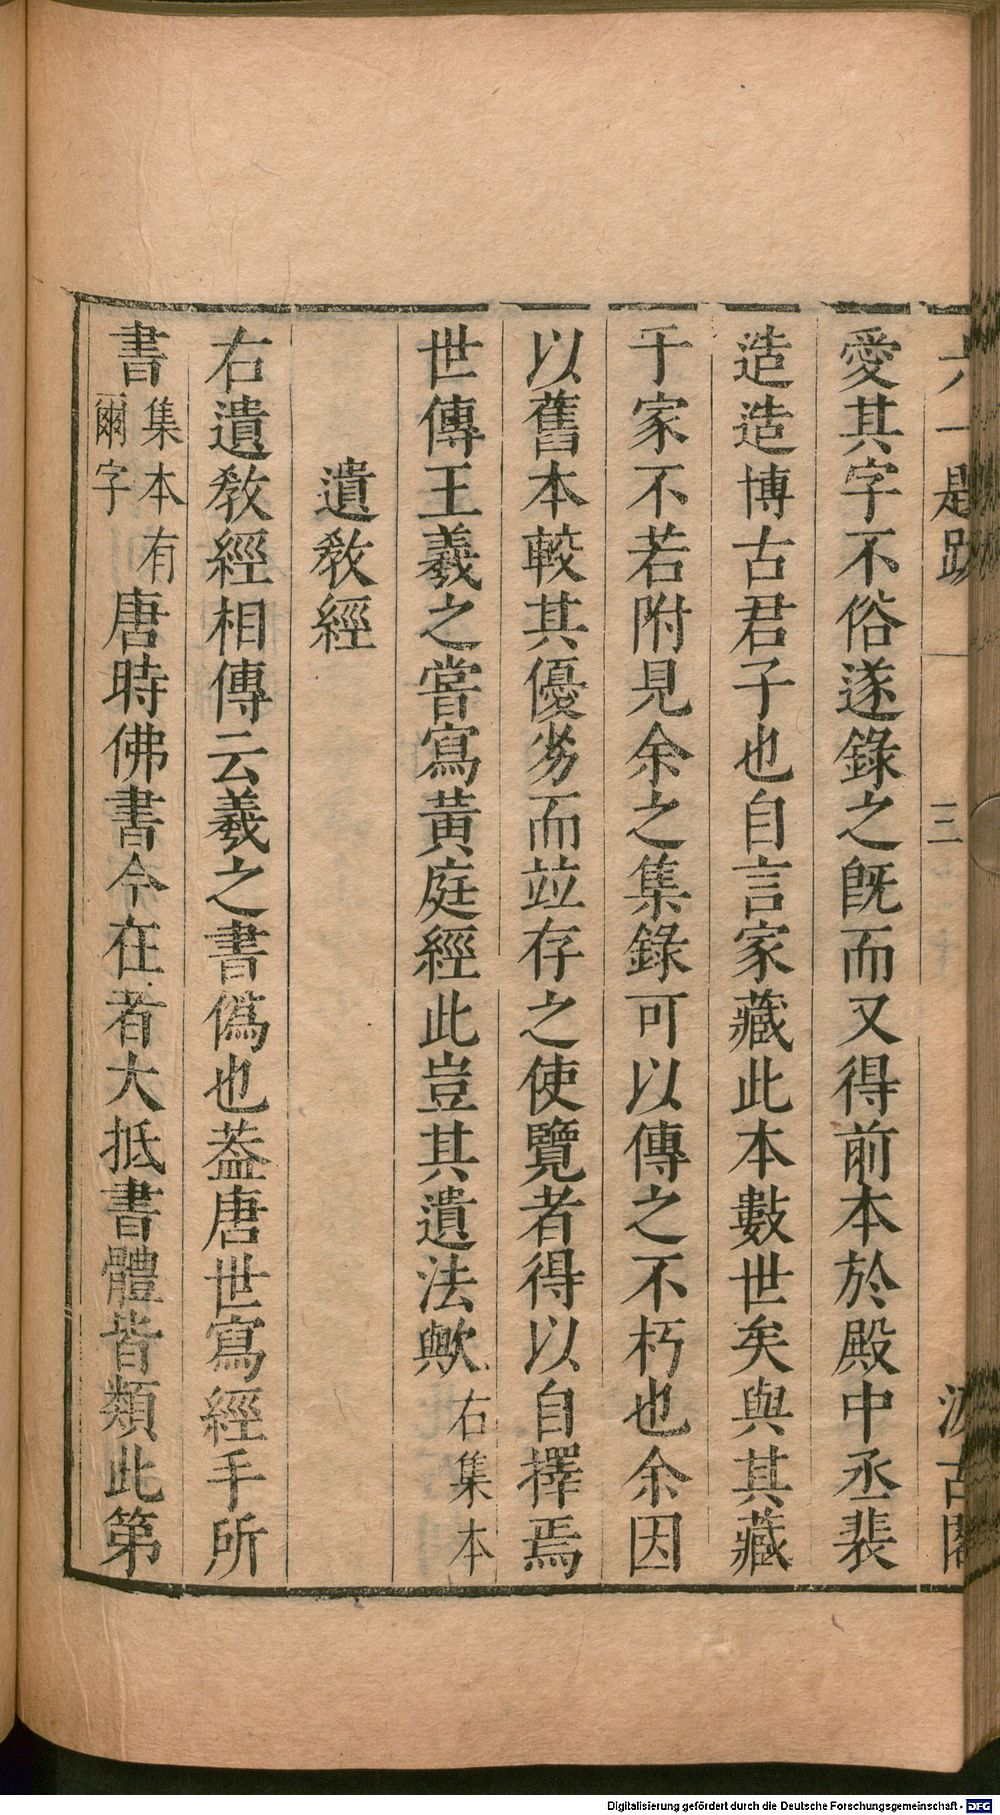 六一題跋 三 汲古閣
愛其字不俗遂錄之旣而又得前本於殿中丞裴
造造博古君子也自言家藏此本數世矣與其藏
于家不若附見余之集錄可以傳之不朽也余因
以舊本較其優劣而竝存之使覽者得以自擇焉
世傳王羲之嘗寫黃庭經此豈其遺法歟右集本
遺教經
右遺教經相傳云羲之書僞也葢唐世寫經手所
書集本有爾字唐時佛書今在者大抵書體皆類此第
Digitalisierung gefördert durch die Deutsche Forschungsgemeinschaft - DFG